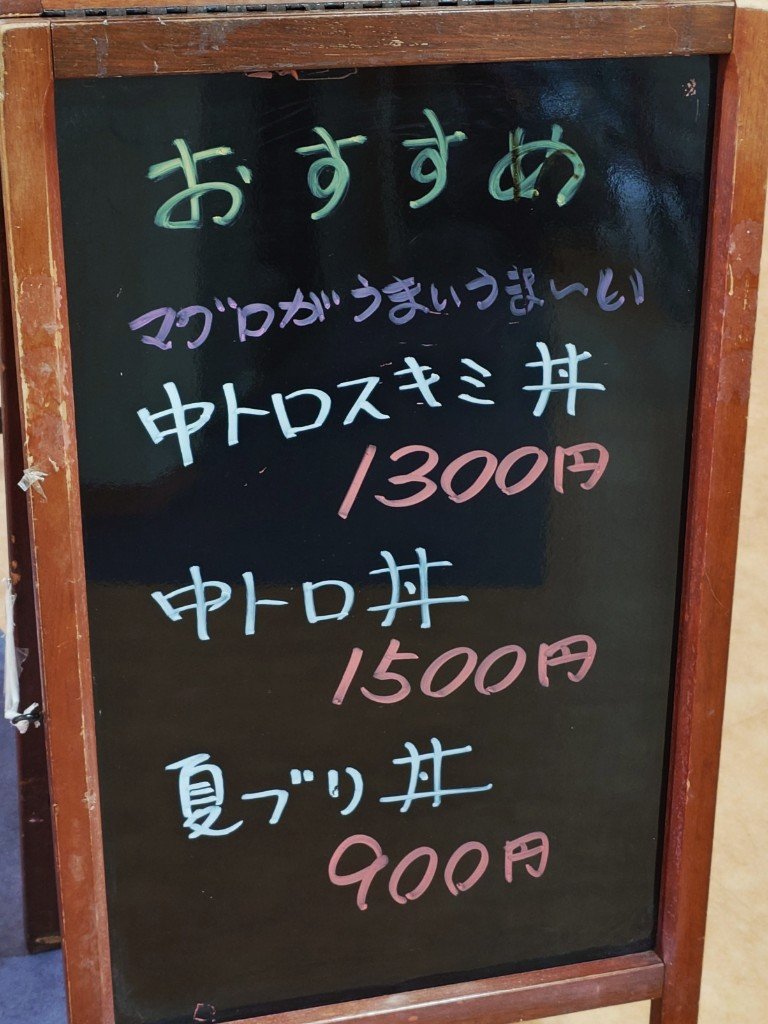 おすすめ
マグロがうまいうまーい
中トロスキミ丼
1300円
中トロ丼
1500円
夏ブリ丼
900円